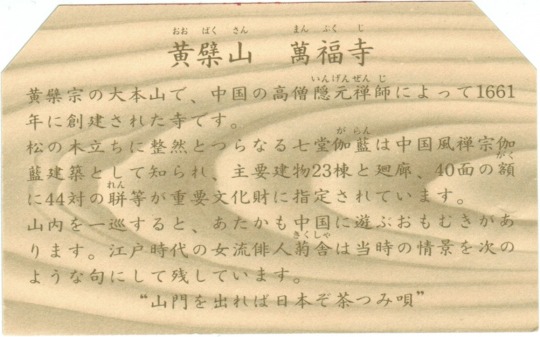 おおばくさん　まんぷくじ
黄檗山　萬福寺
いんげんぜんじ
黄檗宗の大本山で、中国の高僧隠元禅師によって1661
年に創建された寺です。
がらん
松の木立ちに整然とつらなる七堂伽藍は中国風禅宗伽
がく
藍建築として知られ、主要建物23棟と廻廊、40面の額
れん
に44対の聯等が重要文化財に指定されています。
山内を一巡すると、あたかも中国に遊ぶおもむきがあ
きくしゃ
ります。江戸時代の女流俳人菊舎は当時の情景を次の
ような句にして残しています。
“山門を出れば日本ぞ茶つみ唄”